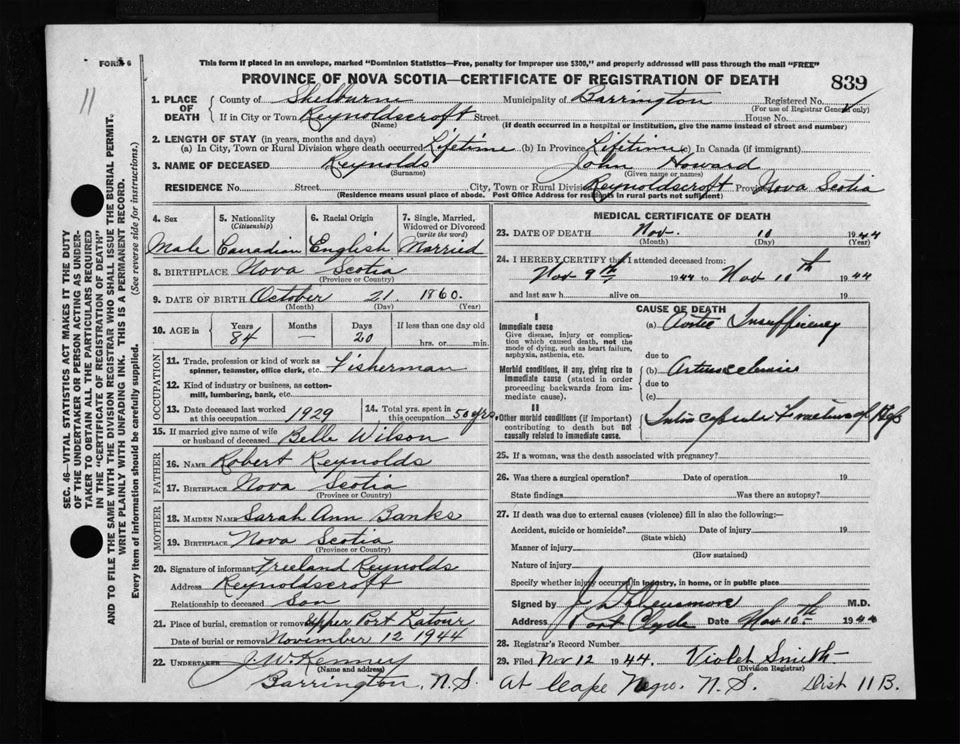 FORM 6
This form if placed in an envelope, marked "Dominion Statistics—Free, penalty for improper use $300," and properly addressed will pass through the mail "FREE"
PROVINCE OF NOVA SCOTIA—CERTIFICATE OF REGISTRATION OF DEATH 839
11
1. PLACE OF DEATH
County of Shelburne Municipality of Barrington Registered No.
(For use of Registrar General only)
If in City or Town Reynoldscroft Street House No.
(Name) (If death occurred in a hospital or institution, give the name instead of street and number)
2. LENGTH OF STAY (in years, months and days)
(a) In City, Town or Rural Division where death occurred Lifetime (b) In Province Lifetime (c) In Canada (if immigrant)
3. NAME OF DECEASED Reynolds John Howard
(Surname) (Given name or names)
RESIDENCE No. Street City, Town or Rural Division Reynoldscroft Province Nova Scotia
(Residence means usual place of abode. Post Office Address for residents in rural parts not sufficient)
4. Sex 5. Nationality (Citizenship) 6. Racial Origin 7. Single, Married, Widowed or Divorced (write the word)
Male Canadian English Married
8. BIRTHPLACE Nova Scotia
(Province or Country)
9. DATE OF BIRTH October 21 1860
(Month) (Day) (Year)
10. AGE in Years Months Days If less than one day old
84 — 20 hrs. or min.
OCCUPATION
11. Trade, profession or kind of work as spinner, teamster, office clerk, etc. Fisherman
12. Kind of industry or business, as cotton-mill, lumbering, bank, etc.
13. Date deceased last worked at this occupation 1929
14. Total yrs. spent in this occupation 50 yrs.
15. If married give name of wife or husband of deceased Belle Wilson
FATHER
16. NAME Robert Reynolds
17. BIRTHPLACE Nova Scotia
(Province or Country)
MOTHER
18. MAIDEN NAME Sarah Ann Banks
19. BIRTHPLACE Nova Scotia
(Province or Country)
20. Signature of informant Freeland Reynolds
Address Reynoldscroft
Relationship to deceased Son
21. Place of burial, cremation or removal Upper Port Latour
Date of burial or removal November 12 1944
22. UNDERTAKER J. W. Kenney
(Name and address)
Barrington, N.S.
MEDICAL CERTIFICATE OF DEATH
23. DATE OF DEATH Nov. 10 1944
(Month) (Day) (Year)
24. I HEREBY CERTIFY that I attended deceased from:
Nov 9th 1944 to Nov 10th 1944
and last saw h alive on 19
CAUSE OF DEATH
I
Immediate cause
Give disease, injury or complication which caused death, not the mode of dying, such as heart failure, asphyxia, asthenia, etc.
(a) Aortic Insufficiency
due to
Morbid conditions, if any, giving rise to immediate cause (stated in order proceeding backwards from immediate cause).
(b)
due to
(c)
II
Other morbid conditions (if important) contributing to death but not causally related to immediate cause.
25. If a woman, was the death associated with pregnancy?
26. Was there a surgical operation? Date of operation 19
State findings Was there an autopsy?
27. If death was due to external causes (violence) fill in also the following:—
Accident, suicide or homicide? Date of injury 19
(State which)
Manner of injury
(How sustained)
Nature of injury
Specify whether injury occurred in industry, in home, or in public place
Signed by M.D.
Address Port Clyde Date Nov 10th 1944
28. Registrar's Record Number
29. Filed Nov 12 1944. Violet Smith
(Division Registrar)
At Cape Negro. N.S. Dist 11 B.
SEC. 46—VITAL STATISTICS ACT MAKES IT THE DUTY
OF THE UNDERTAKER OR PERSON ACTING AS UNDER-
TAKER TO OBTAIN ALL THE PARTICULARS REQUIRED
IN THE "CERTIFICATE OF REGISTRATION OF DEATH"
AND TO FILE THE SAME WITH THE DIVISION REGISTRAR WHO SHALL ISSUE THE BURIAL PERMIT.
WRITE PLAINLY WITH UNFADING INK. THIS IS A PERMANENT RECORD.
Every item of information should be carefully supplied. (See reverse side for instructions.)